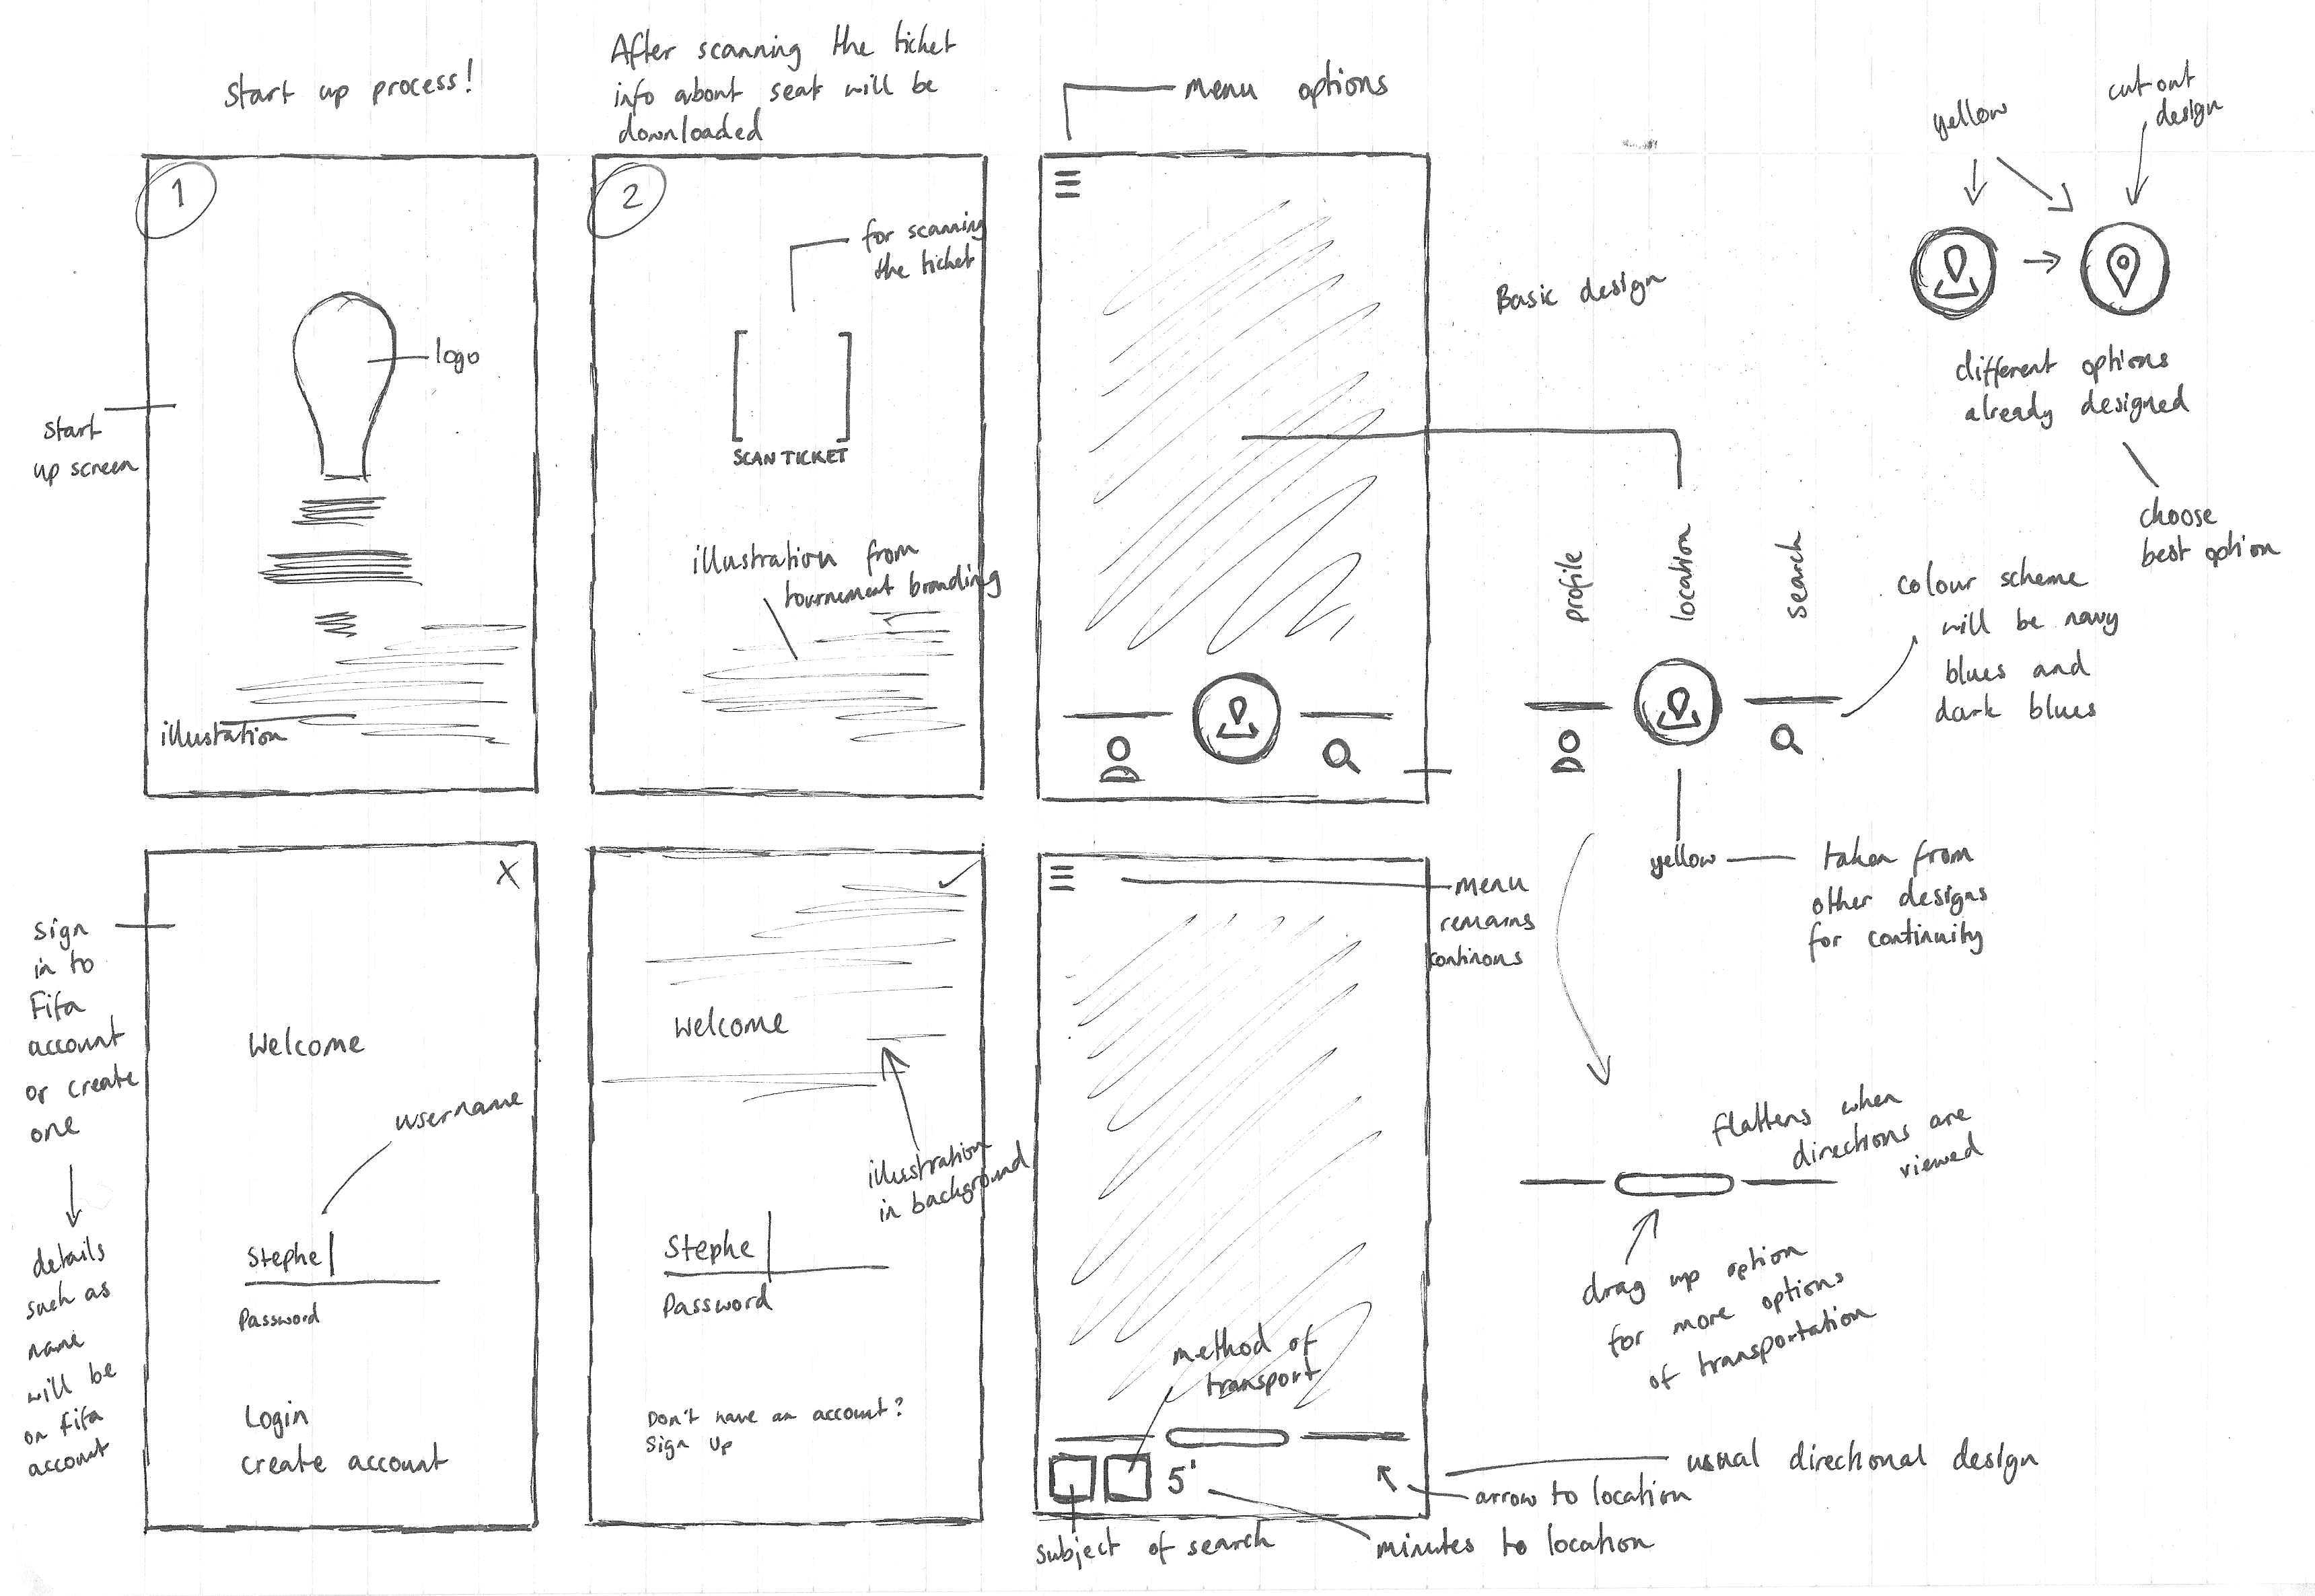 Start up process!
After scanning the ticket
info about seat will be
downloaded
menu options
yellow
cut out
design
1
2
for scanning
the ticket
logo
Start
up screen
SCAN TICKET
illustration from
tournement branding
illustation
Basic design
different options
already designed
choose
best option
profile
location
search
colour scheme
will be navy
blues and
dark blues
yellow
taken from
other designs
for continuity
X
Sign
in to
Fifa
account
or create
one
details
such as
name
will be
on fifa
account
Welcome
username
Stephe
Password
Login
create account
Welcome
illusstration
in background
Stephe
Password
Don't have an account?
Sign Up
menu
remains
continons
method of
transport
5'
flattens when
directions are
viewed
drag up option
for more options
of transportation
usual directional design
arrow to location
minutes to location
subject of search